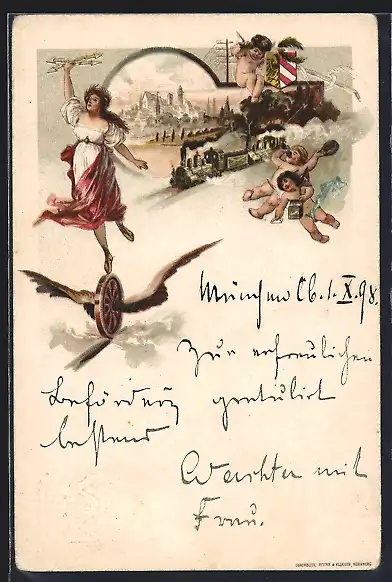 München Ob. 1. X. 98.
Zur erfreulichen
Beförderg gratulirt
bestens
Wachter mit
Frau.